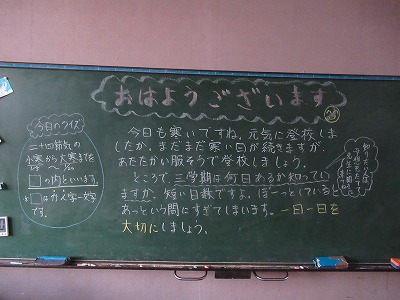 おはようございます
今日も寒いですね。元気に登校しま
したか。まだまだ寒い日が続きますが、
あたたかい服そうで登校しましょう。
ところで、三学期は何日あるか知ってい
ますか。短い日数ですよ。ぼーっとしていると
あっという間にすぎてしまいます。一日一日を
大切にしましょう。
今日のクイズ
二十四節気の
小寒から大寒までを
□の内といいます。
□はカン字一文字
です。